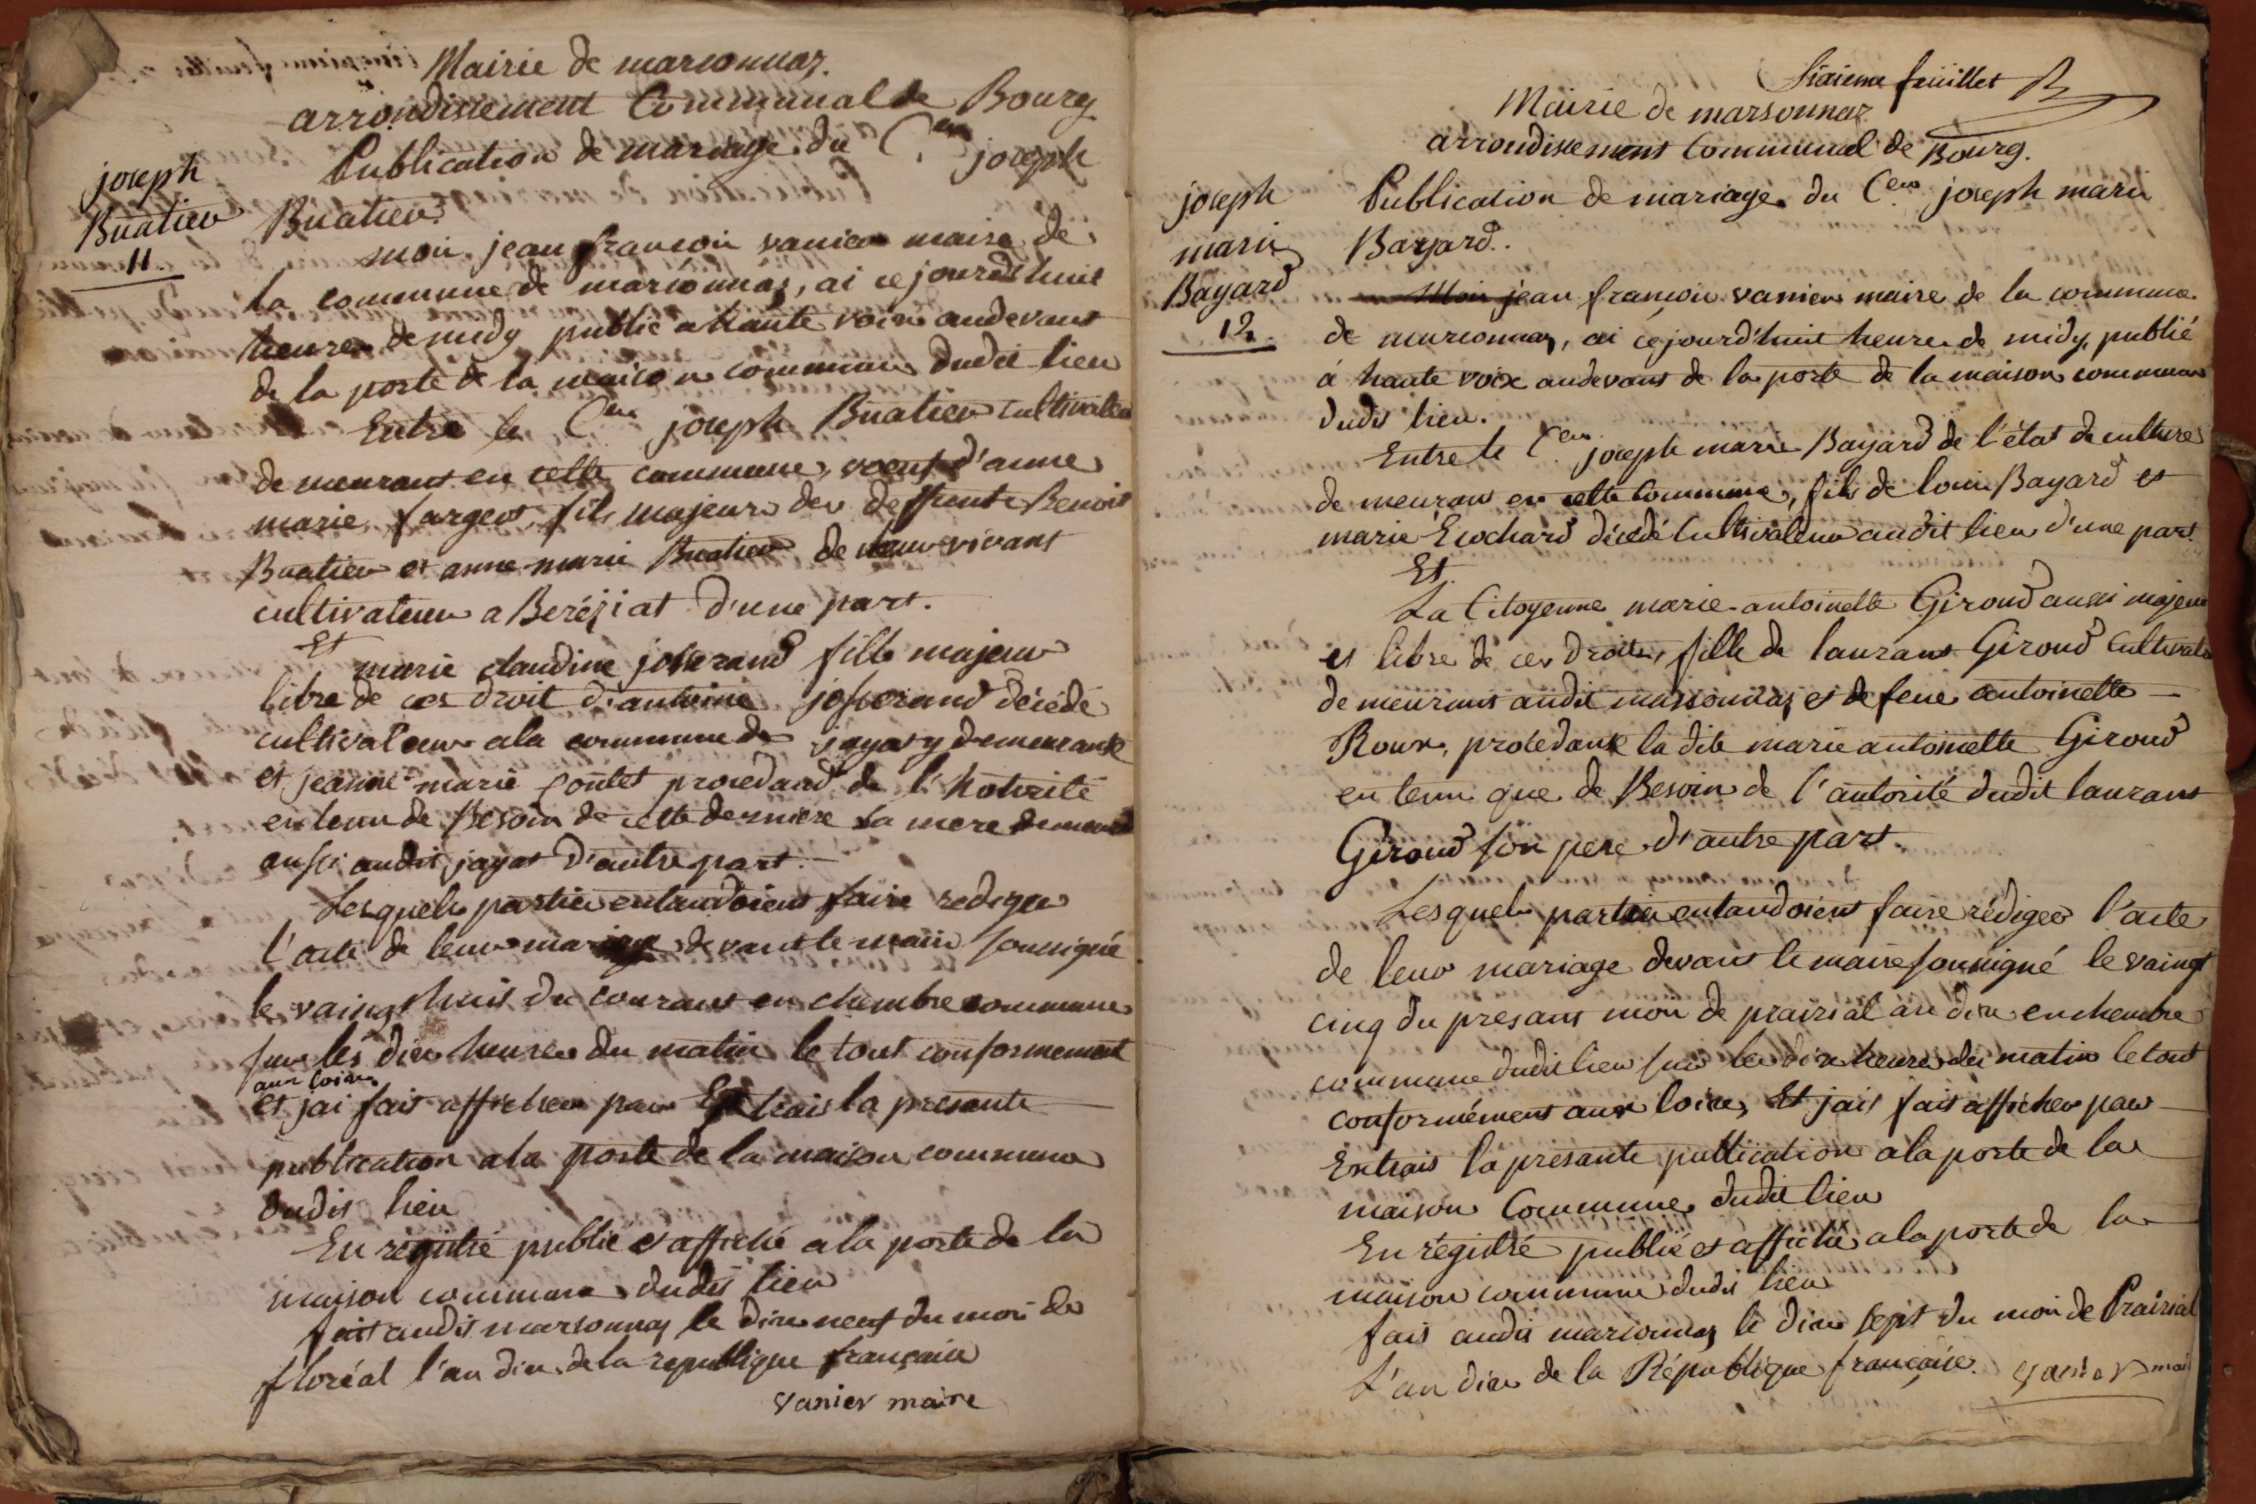 Mairie de marsonnaz.
arrondissement Communal de Bourg
Publication de mariage du C.en joseph
joseph
Buatier
11.
Buatier.
moi jean françois vanier maire de
la commune de marsonnaz, ai cejourd'huit
heures de midy publié a haute voix audevant
de la porte de la maison commune dudit lieu
Entre le C.en joseph Buatier cultivateur
de meurant en cette commune, veuf d'anne
marie fargeot, fils majeur des deffunts Benoit
Buatier et anne marie Buatier de leur vivant
cultivateur a Beréziat d'une part.
Et
marie claudine josserand fille majeur
libre de ces droit d'antoine josserand décédé
cultivateur a la commune de jayat y demeurant
et jeanne-marie procedand de l'hotorité
en tenu de Besoin de cette derniere sa mere demeurant
aussi audit jayat d'autre part.
Lesquels parties entandoient faire rediger
l'acte de leur mariage devant le maire soussigné
le vaingt huit du courant en chambre commune
sur les dix heures du matin le tout conformement
aux loix.
et jai fait afficher par Extrait la presante
publication a la porte de la maison commune
dudit lieu
En régistré publié et affiché a la porte de la
maison commune dudit lieu
fait audit marsonnaz le dix neuf du mois de
floréal l'an dix de la republique française
vanier maire
Sixieme feuillet
Mairie de marsonnaz
arrondissement Communal de Bourg.
joseph
marie
Bayard
12.
Publication de mariage du C.en joseph marie
Bayard.
Moi jean françois vanier maire de la commune
de marsonnaz, ai cejourd'huit heures de midy, publié
à haute voix audevant de la porte de la maison commune
dudit lieu.
Entre le C.en joseph marie Bayard de l'état de culture
de meurant en cette Commune, fils de louis Bayard et
marie Erochard décédé Cultivateur audit lieu d'une part
Et.
La Citoyenne marie-antoinette Giroud aussi majeur
et libre de ces droits, fille de laurant Giroud Cultivateur
de meurant audit marsonnaz et de feue antoinette
Roux, procedant la dite marie antoinette Giroud
en tenu que de Besoin de l'autorité dudit laurant
Giroud son pere d'autre part.
Lesquels parties entandoient faire rédiger l'acte
de leur mariage devant le maire soussigné le vaingt
cinq du presant mois de prairial an dix en chembre
commune dudit lieu sur les dix heures du matin le tout
conformément aux loix, Et jait fait afficher par
Extrait la présante publication a la porte de la
maison Commune dudit lieu
En régistré publié et affiché a la porte de la
maison commune dudit lieu
fait audit marsonnaz le dix sept du mois de Prairial
L'an dix de la République française. vanier mai